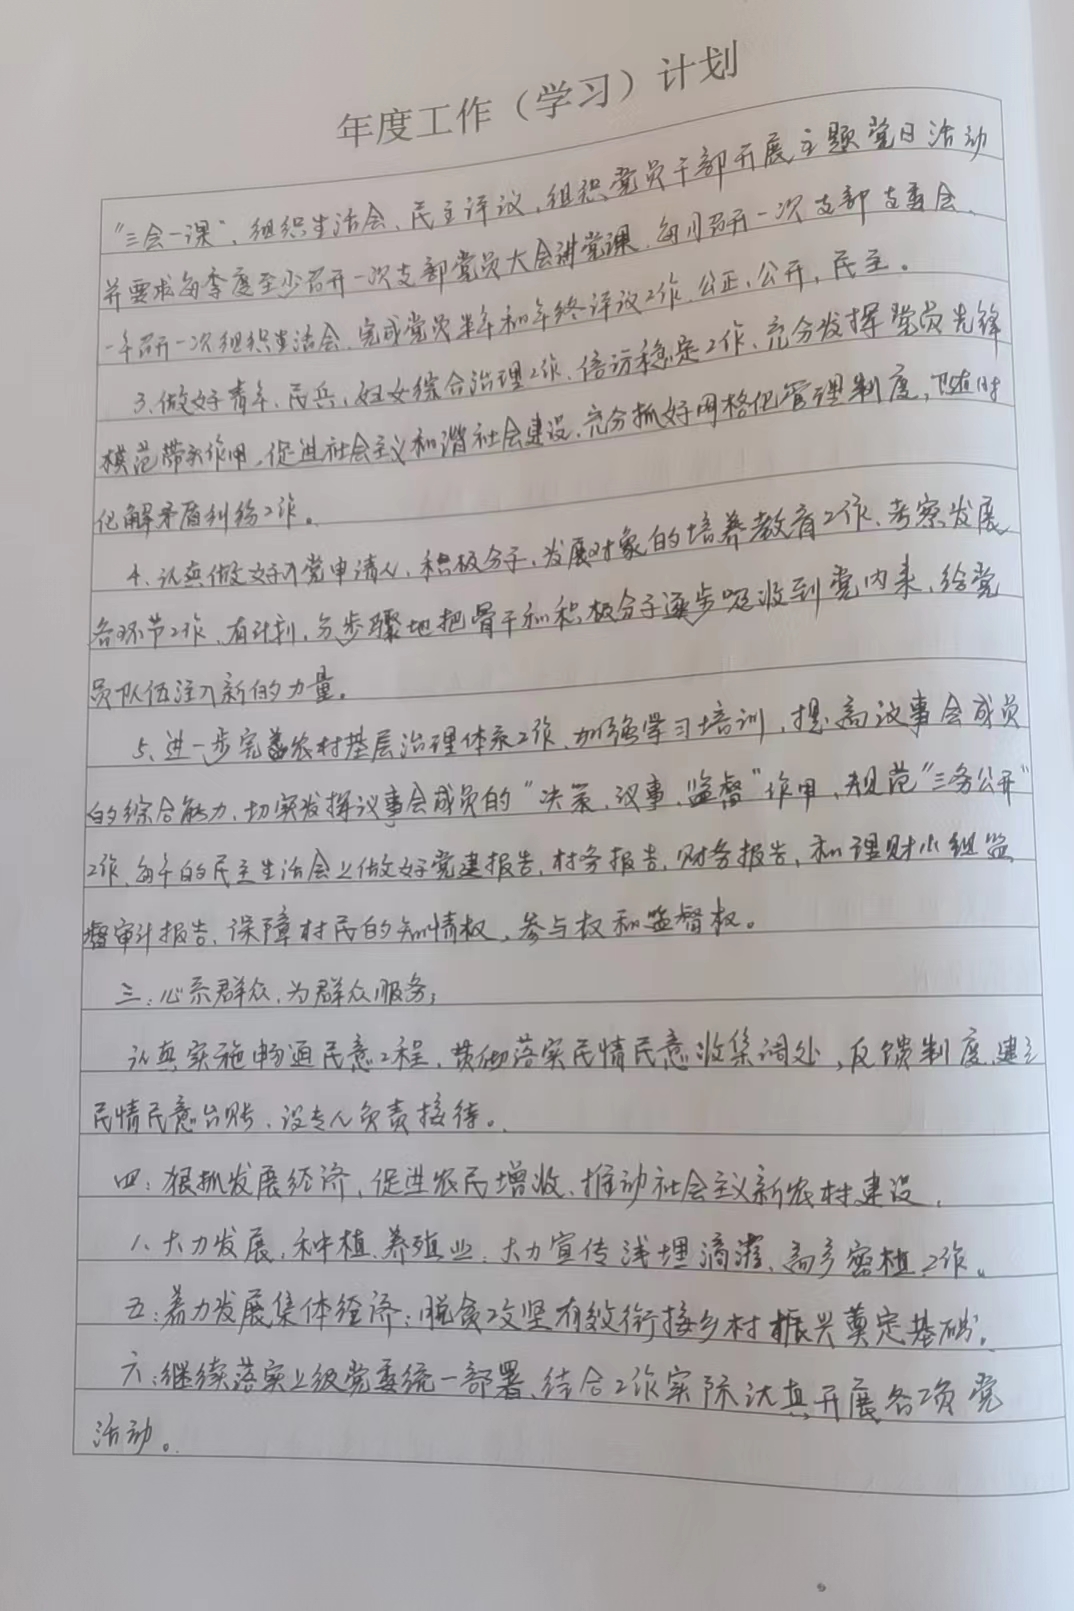 年度工作（学习）计划
“三会一课”、组织生活会、民主评议、组织党员干部开展主题党日活动
并要求每季度至少召开一次支部党员大会讲党课，每月召开一次支部支委会、
一年召开一次组织生活会，完成党员半年和年终评议工作，公正，公开，民主。
3、做好青年、民兵、妇女综合治理工作、信访稳定工作、充分发挥党员先锋
模范带头作用，促进社会主义和谐社会建设，充分抓好网格化管理制度，随时
化解矛盾纠纷工作。
4、认真做好入党申请人、积极分子、发展对象的培养教育工作、考察发展
各环节工作，有计划，分步骤地把骨干和积极分子逐步吸收到党内来，给党
员队伍注入新的力量。
5、进一步完善农村基层治理体系工作，加强学习培训，提高议事会成员
的综合能力，切实发挥议事会成员的“决策、议事、监督”作用，规范“三务公开”
工作，每年的民主生活会上做好党建报告，村务报告，财务报告，和理财小组监
督审计报告，保障村民的知情权，参与权和监督权。
三：心系群众，为群众服务；
认真实施畅通民意工程，贯彻落实民情民意收集调处，反馈制度，建立
民情民意台账，设专人负责接待。
四：狠抓发展经济，促进农民增收、推动社会主义新农村建设，
1、大力发展，种植、养殖业，大力宣传浅埋滴灌，高产密植工作。
五：着力发展集体经济：脱贫攻坚有效衔接乡村振兴奠定基础。
六：继续落实上级党委统一部署，结合工作实际认真开展各项党
活动。